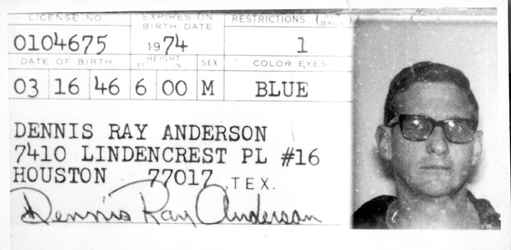 LICENSE NO EXPIRES ON BIRTH DATE RESTRICTIONS
0104675 1974 1
DATE OF BIRTH HEIGHT SEX COLOR EYES
03 16 46 6 00 M BLUE
DENNIS RAY ANDERSON
7410 LINDENCREST PL #16
HOUSTON 77017 TEX.
Dennis Ray Anderson